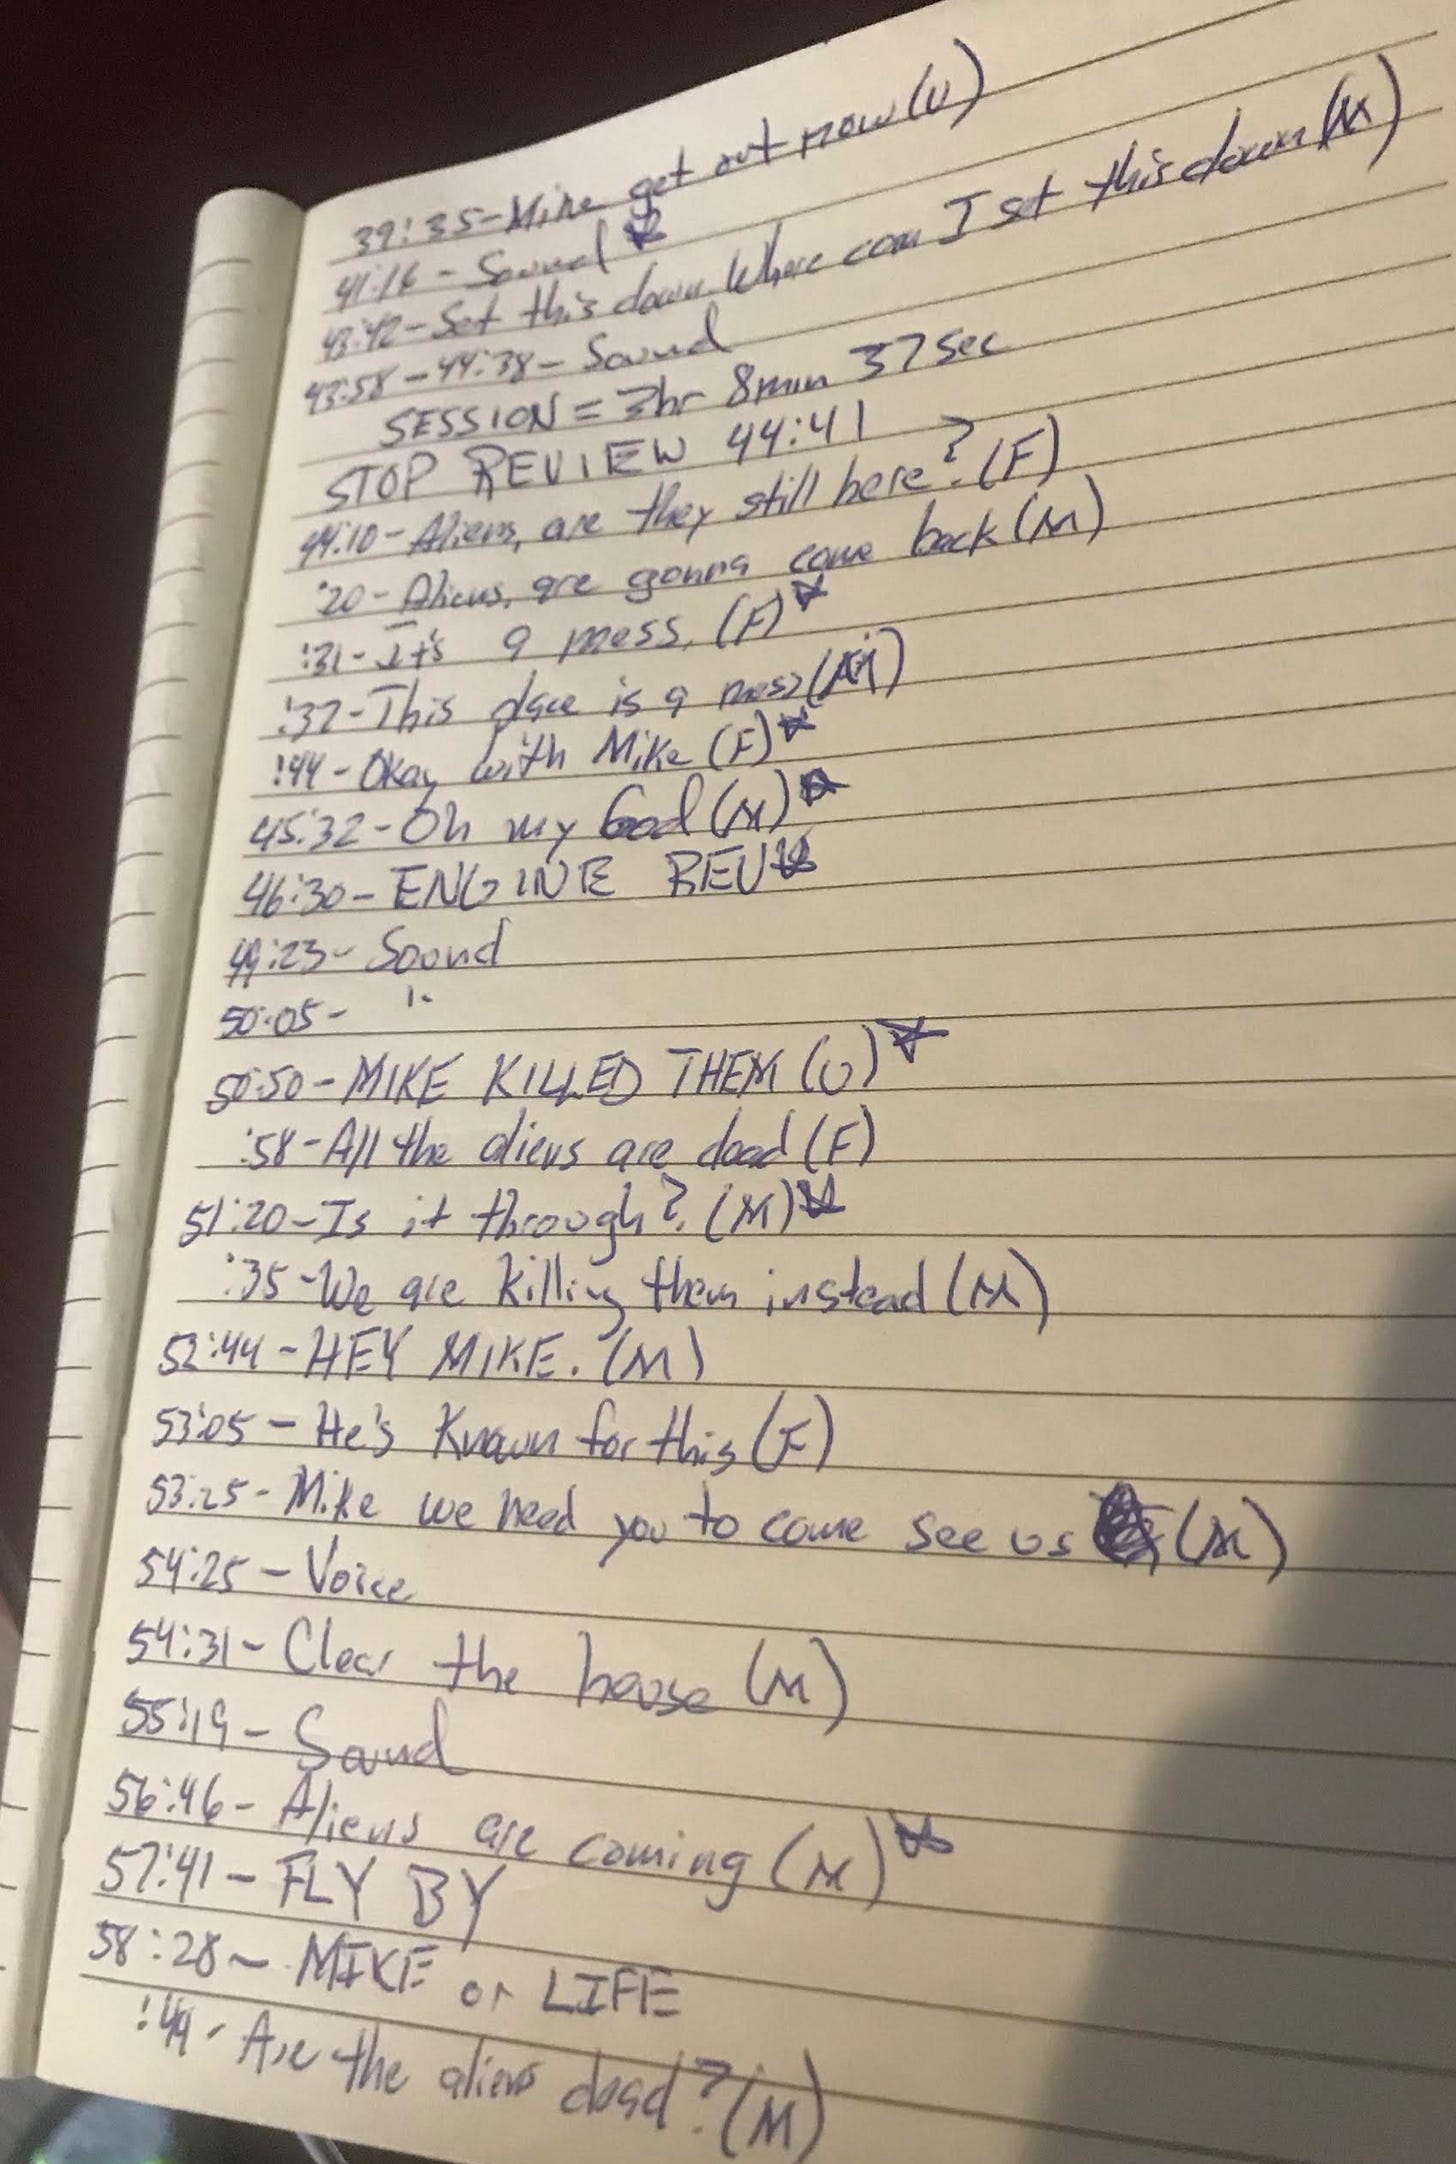 39:35-Mike get out now (U)
41:16 - Sound ☆
43:42-Set this down Where can I set this down (M)
43:58-44:38- Sound
SESSION = 3hr 8min 37sec
STOP REVIEW 44:41
44:10-Aliens, are they still here? (F)
:20-Aliens, are gonna come back (M)
:31-It's a mess. (F) ☆
:37-This place is a mess (M)
:44-Okay with Mike (F) ☆
45:32-Oh my God (M) ☆
46:30-ENGINE REV ☆
49:23- Sound
50:05- "
50:50-MIKE KILLED THEM (U) ☆
:58-All the aliens are dead (F)
51:20-Is it through? (M) ☆
:35-We are killing them instead (M)
52:44-HEY MIKE. (M)
53:05-He's Known for this (F)
53:25-Mike we need you to come see us (M)
54:25-Voice
54:31-Clear the house (M)
55:19-Sound
56:46-Aliens are coming (M) ☆
57:41-FLY BY
58:28-MIKE or LIFE
:49-Are the aliens dead? (M)